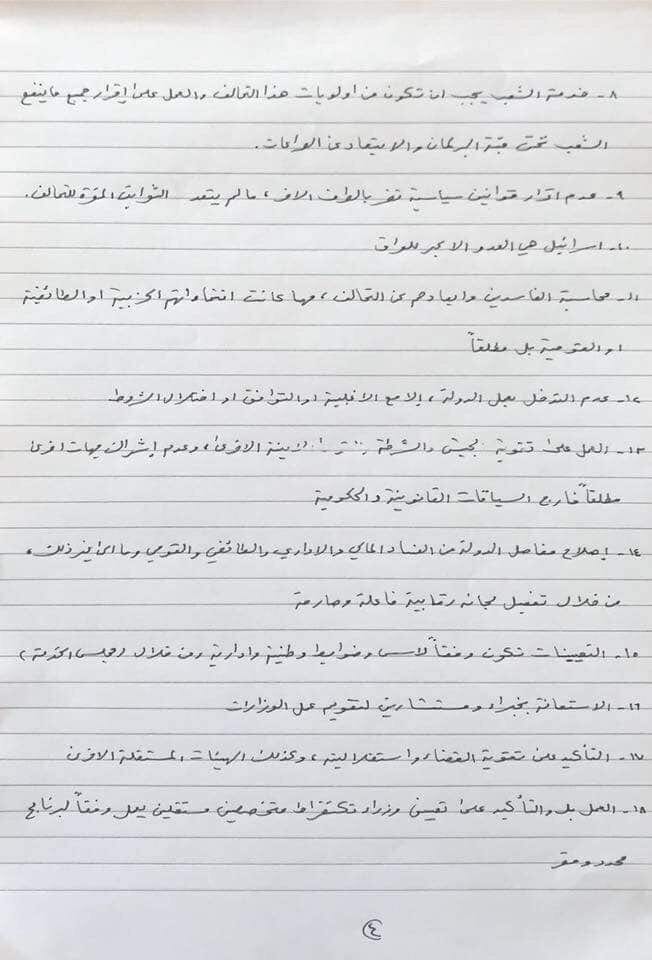 ٨- خدمة الشعب يجب ان تكون من اولويات هذا التحالف والعمل على إقرار جميع ما ينفع
الشعب تحت قبّة البرلمان والابتعاد عن الصراعات.
٩- عدم اقرار قوانين سياسية تضر بالطرف الآخر، ما لم يتعد الثوابت المقرة للتحالف.
١٠- اسرائيل هي العدو الاكبر للعراق
١١- محاسبة الفاسدين وابعادهم عن التحالف، مهما كانت انتماءاتهم الحزبية او الطائفية
او القومية بل مطلقاً
١٢- عدم التدخل بعمل الدولة، إلا مع الاغلبية او التوافق او اختلال الشروط
١٣- العمل على تقوية الجيش والشرطة الامنية الاخرى، وعدم إشراك جهات اخرى
مطلقاً خارج السياقات القانونية والحكومية
١٤- إصلاح مفاصل الدولة من الفساد المالي والاداري والطائفي والقومي وما الى غير ذلك،
من خلال تفعيل لجانه رقابية فاعلة وصارمة
١٥- التعيينات تكون وفقاً لاسس وضوابط وطنية وادارية ومن خلال (مجلس الخدمة)
١٦- الاستعانة بخبراء ومستشارين لتقويم عمل الوزارات
١٧- التأكيد على تقوية القضاء واستقلاليته، وكذلك الهيئات المستقلة الاخرى
١٨- العمل بل والتأكيد على تعيين وزراء تكنقراط متخصصين مستقلين يعمل وفقاً لبرنامج
محدد ومقر
٤